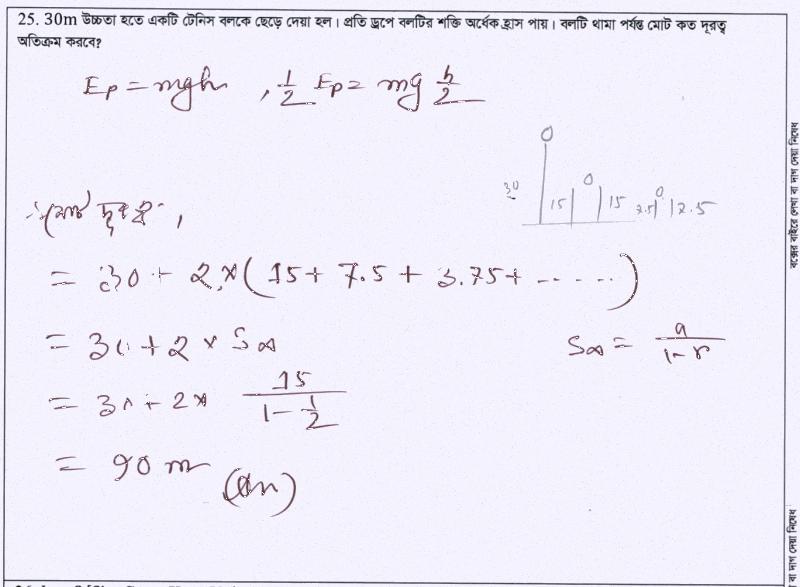 25. 30m উচ্চতা হতে একটি টেনিস বলকে ছেড়ে দেয়া হল। প্রতি ড্রপে বলটির শক্তি অর্ধেক হ্রাস পায়। বলটি থামা পর্যন্ত মোট কত দূরত্ব
অতিক্রম করবে?
Ep = mgh , 1/2 Ep = mg h/2
30 15 15 7.5 7.5
∴ মোট দূরত্ব,
= 30 + 2 × (15 + 7.5 + 3.75 + ......)
= 30 + 2 × S∞
S∞ = a/(1-r)
= 30 + 2 × 15/(1 - 1/2)
= 90 m (Ans)
বক্সের বাইরে লেখা বা দাগ দেয়া নিষেধ
বা দাগ দেয়া নিষেধ